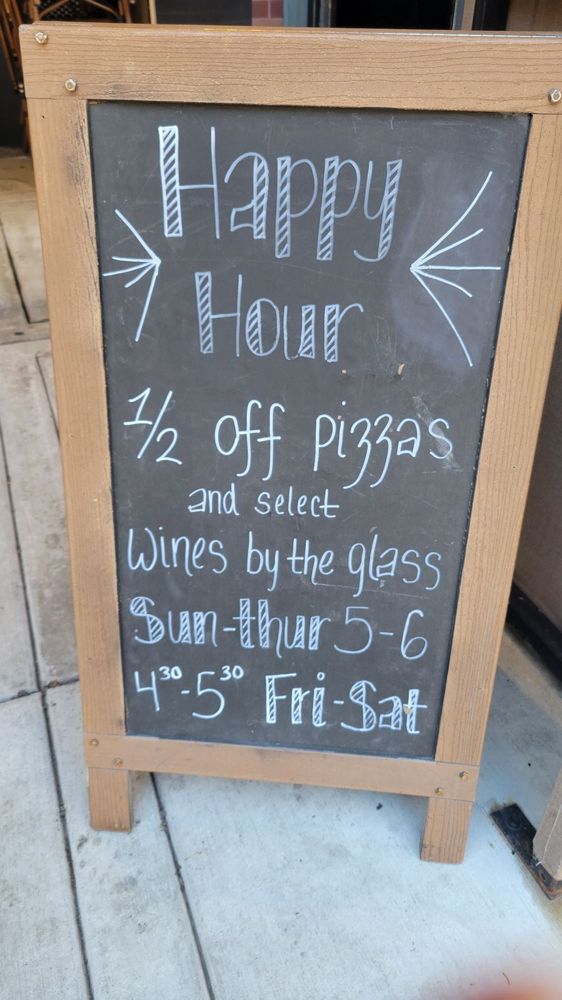 Happy
Hour
1/2 off pizzas
and select
Wines by the glass
Sun-thur 5-6
4³⁰-5³⁰ Fri-Sat